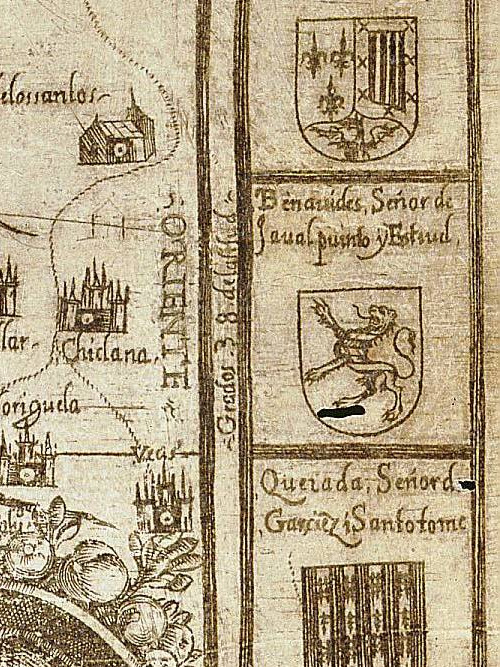 delossantos
ORIENTE
Chiclana.
lar.
origuela
veas
Grados. 38. de latitud.
Benauides, Señor de
Jaualpuinto y Estiud,
Queiada, Señord.
Garciez, i Santotome